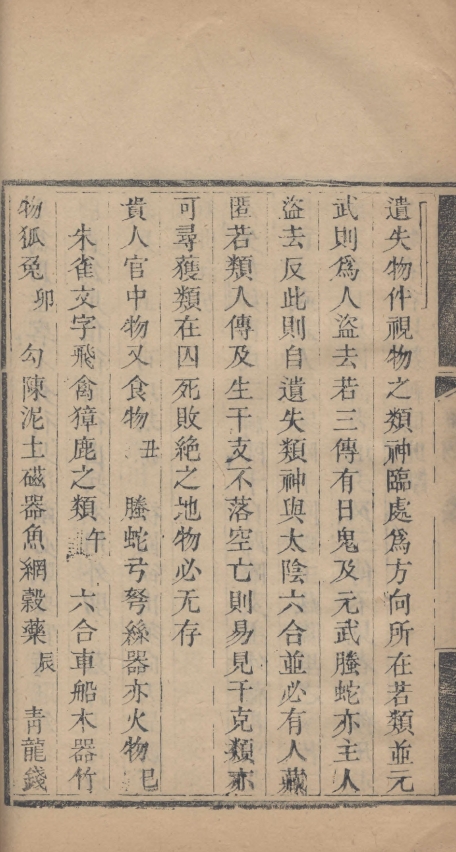 遺失物件視物之類神臨處爲方向所在若類並元
武則爲人盜去若三傳有日鬼及元武螣蛇亦主人
盜去反此則自遺失類神與太陰六合並必有人藏
匿若類入傳及生干支不落空亡則易見干克類亦
可尋獲類在囚死敗絶之地物必无存
貴人官中物又食物丑 螣蛇弓弩絲器亦火物巳
朱雀文字飛禽獐鹿之類午 六合車船木器竹
物狐兔卯 勾陳泥土磁器魚網穀藥辰 青龍錢